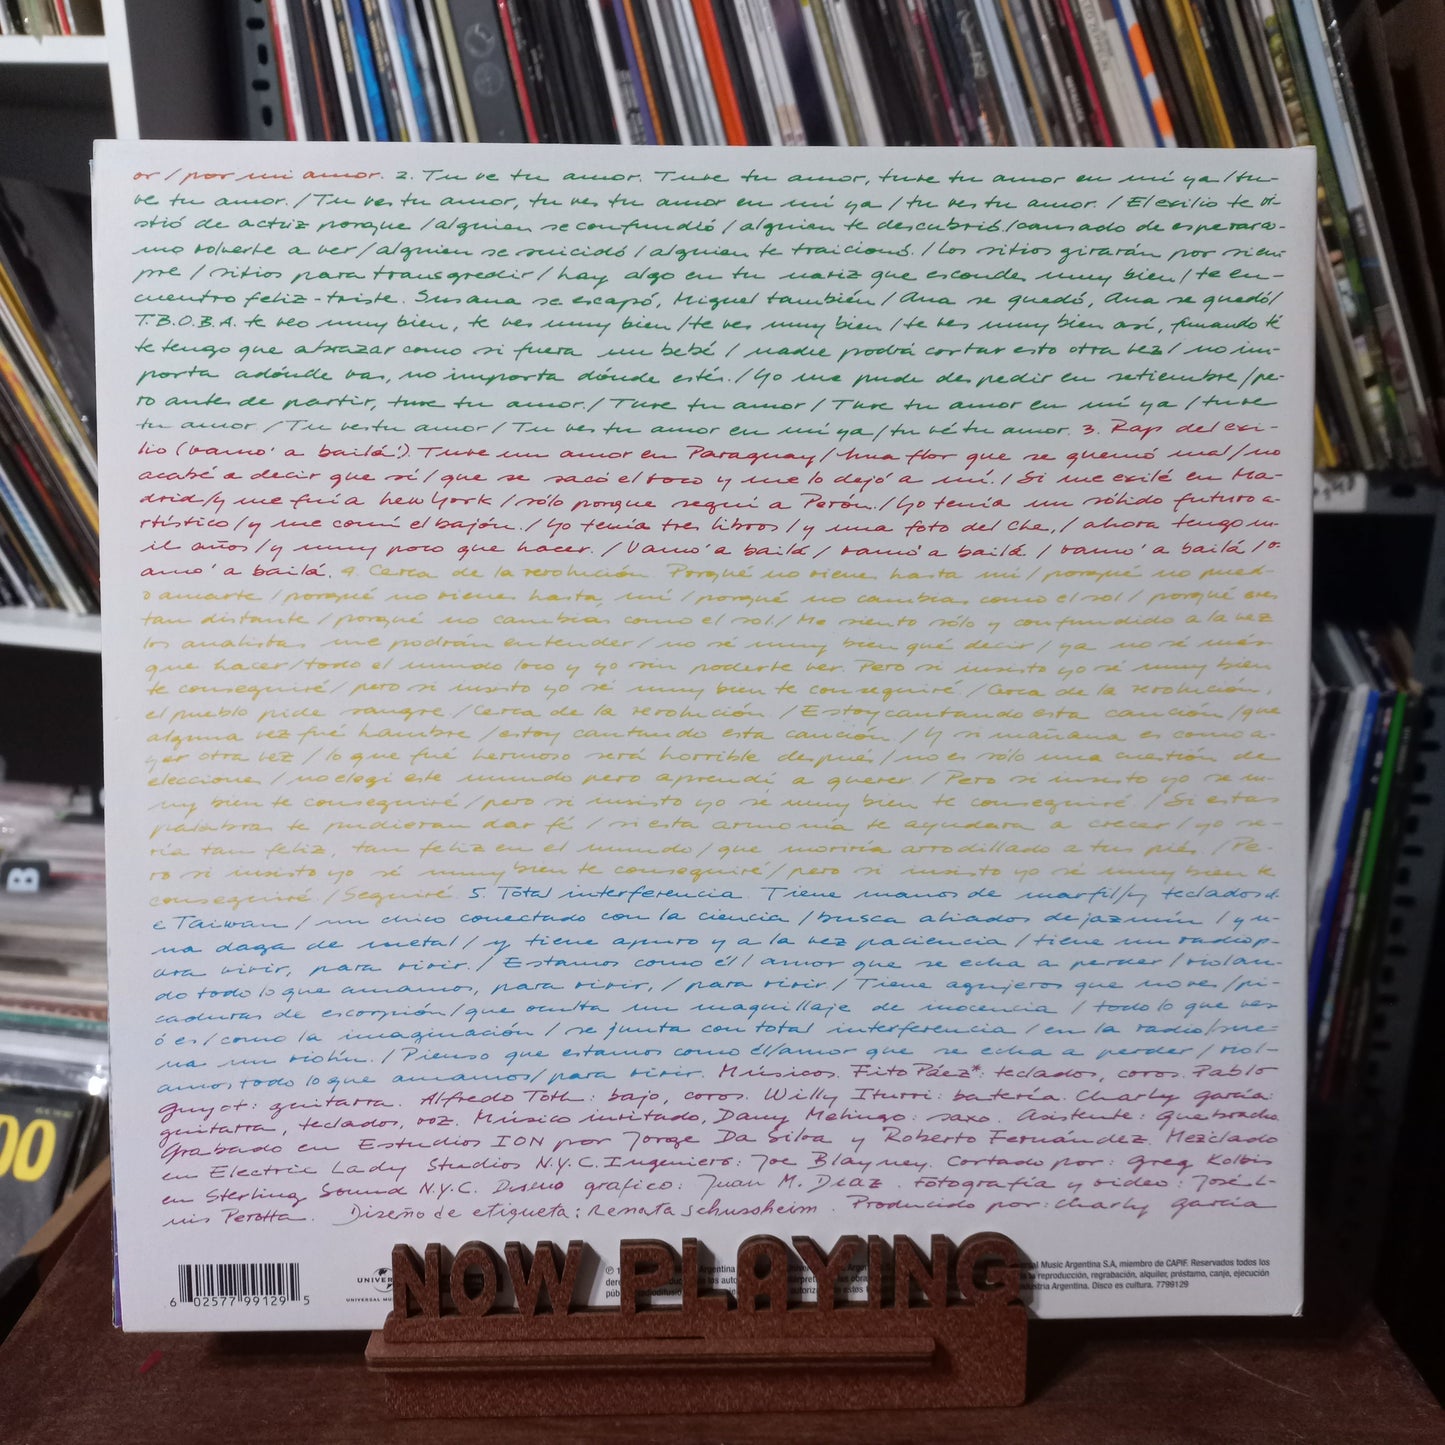 or / por mi amor. 2. Tuve tu amor. Tuve tu amor, tuve tu amor en mí ya / tu-
ve tu amor. / Tu ves tu amor, tu ves tu amor en mí ya / tu ves tu amor. / El exilio te vi-
stió de actriz porque / alguien se confundió / alguien te descubrió / cansado de esperara-
mo volverte a ver / alguien se suicidó / alguien te traicionó. / Los sitios girarán por siem
pre / sitios para transgredir / hay algo en tu nariz que esconde muy bien / te en-
cuentro feliz-triste. Susana se escapó, Miguel también / Ana se quedó, Ana se quedó /
T.B.O.B.A. te veo muy bien, te ves muy bien / te ves muy bien / te ves muy bien así, fumando té
te tengo que abrazar como si fuera un bebé / nadie podrá cortar esto otra vez / no im-
porta adónde vas, no importa dónde estés. / Yo me pude despedir en setiembre / pe-
ro antes de partir, tuve tu amor. / Tuve tu amor / Tuve tu amor en mí ya / tuve
tu amor / Tu ves tu amor / Tu ves tu amor en mí ya / tu vé tu amor. 3. Rap del exi-
lio (vamo' a bailá'). Tuve un amor en Paraguay / una flor que se quemó mal / no
acabé a decir que sí / que se sacó el coco y me lo dejó a mí. / Si me exilé en Ma-
drid / y me fuí a New York / sólo porque seguí a Perón. / Yo tenía un sólido futuro a-
rtístico / y me comí el bajón. / Yo tenía tres libros / y una foto del Che, / ahora tengo m-
il años / y muy poco que hacer. / Vamo' a bailá / vamo' a bailá / vamo' a bailá / v-
amo' a bailá. 4. Cerca de la revolución. Porqué no vienes hasta mí / porqué no pued-
o amarte / porqué no vienes hasta mí / porqué no cambias como el sol / porqué eres
tan distante / porqué no cambias como el sol / Me siento sólo y confundido a la vez
los analistas me podrán entender / no sé muy bien qué decir / ya no sé más
que hacer / todo el mundo loco y yo sin poderte ver. Pero si insisto yo sé muy bien
te conseguiré / pero si insisto yo sé muy bien te conseguiré. / Cerca de la revolución,
el pueblo pide sangre / Cerca de la revolución. / Estoy cantando esta canción / que
alguna vez fué hambre / estoy cantando esta canción / Y si mañana es como a-
yer otra vez / lo que fué hermoso será horrible después / no es sólo una cuestión de
elecciones / no elegí este mundo pero aprendí a querer. / Pero si insisto yo se m-
uy bien te conseguiré / pero si insisto yo sé muy bien te conseguiré. / Si estas
palabras te pudieran dar fé / si esta armonía te ayudara a crecer / yo se-
ría tan feliz, tan feliz en el mundo / que moriría arrodillado a tus pies. / Pe-
ro si insisto yo sé muy bien te conseguiré / pero si insisto yo sé muy bien te
conseguiré. / Seguiré. 5. Total interferencia. Tiene manos de marfil / y teclados d-
e Taiwan / un chico conectado con la ciencia / busca aliados de jazmín / y u-
na daga de metal / y tiene apuro y a la vez paciencia / tiene un radio p-
ara vivir, para vivir. / Estamos como él / amor que se echa a perder / violan-
do todo lo que amamos, para vivir, / para vivir. / Tiene agujeros que no ves / pi-
caduras de escorpión / que oculta un maquillaje de inocencia / todo lo que ves
ó es / como la imaginación / se junta con total interferencia / en la radio / sue-
na un violín. / Pienso que estamos como él / amor que se echa a perder / viol-
amos todo lo que amamos / para vivir. Músicos. Fito Páez*: teclados, coros. Pablo
Guyot: guitarra. Alfredo Toth: bajo, coros. Willy Iturri: batería. Charly García:
guitarra, teclados, voz. Músico invitado, Dany Melingo: saxo. Asistente: Quebracho.
Grabado en Estudios ION por Jorge Da Silva y Roberto Fernández. Mezclado
en Electric Lady Studios N.Y.C. Ingeniero: Joe Blayney. Cortado por: Greg Kolbis
en Sterling Sound N.Y.C. Diseño gráfico: Juan M. Díaz. Fotografía y video: José L-
uis Perotta. Diseño de etiqueta: Renata Schussheim. Producido por: Charly García
6 02577 99129 5
NOW PLAYING
al Music Argentina S.A, miembro de CAPIF. Reservados todos los
reproducción, regrabación, alquiler, préstamo, canje, ejecución
Industria Argentina. Disco es cultura. 7799129